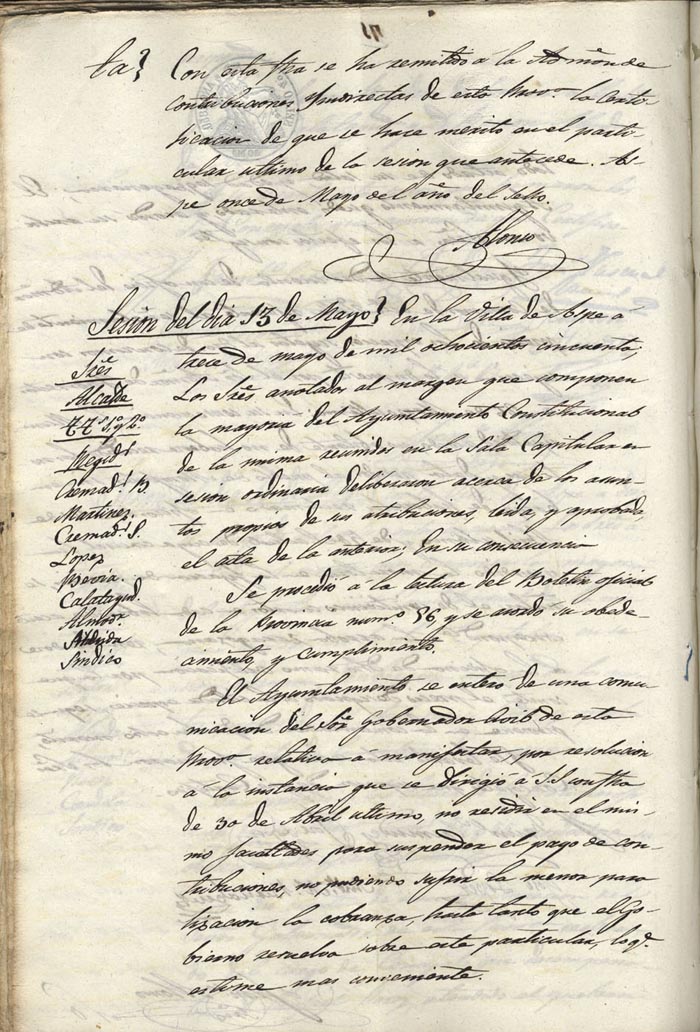 ta? Con esta fha se ha remitido á la Admon de
contribuciones Yndirectas de esta Prova. la certi-
ficacion de que se hace merito en el parti-
cular ultimo de la sesion que antecede. As-
pe once de Mayo del año del sello.
Alonso
Sesion del dia 13 de Mayo} En la Villa de Aspe á
trece de mayo de mil ochocientos cincuenta,
Los Sres anotados al margen que componen
la mayoria del Ayuntamiento Constitucional
de la misma reunidos en la Sala Capitular en
sesion ordinaria deliberaron acerca de los asun-
tos propios de sus atribuciones, leida, y aprobada
el acta de la anterior; En su consecuencia
Se procedió á la lectura del Boletin oficial
de la Provincia numo. 56, y se acordó su obede-
cimiento, y cumplimiento.
El Ayuntamiento se entero de una comu-
nicacion del Sor. Gobernador Civil de esta
Prova. relativa á manifestar, por resolucion
á la instancia que se dirigió á S.S. con fha
de 30 de Abril ultimo, no residir en el mis-
mo facultades para suspender el pago de con-
tribuciones, no pudiendo sufrir la menor para
lizacion la cobranza, hasta tanto que el Go-
bierno resuelva sobre este particular, lo qe.
estime mas conveniente.
Sres
Alcalde
TTs. 1o. y 2o.
Regids.
Cremads. B.
Martinez.
Cremads. S.
Lopez
Bevia.
Calatayud.
Almodr.
Sindico